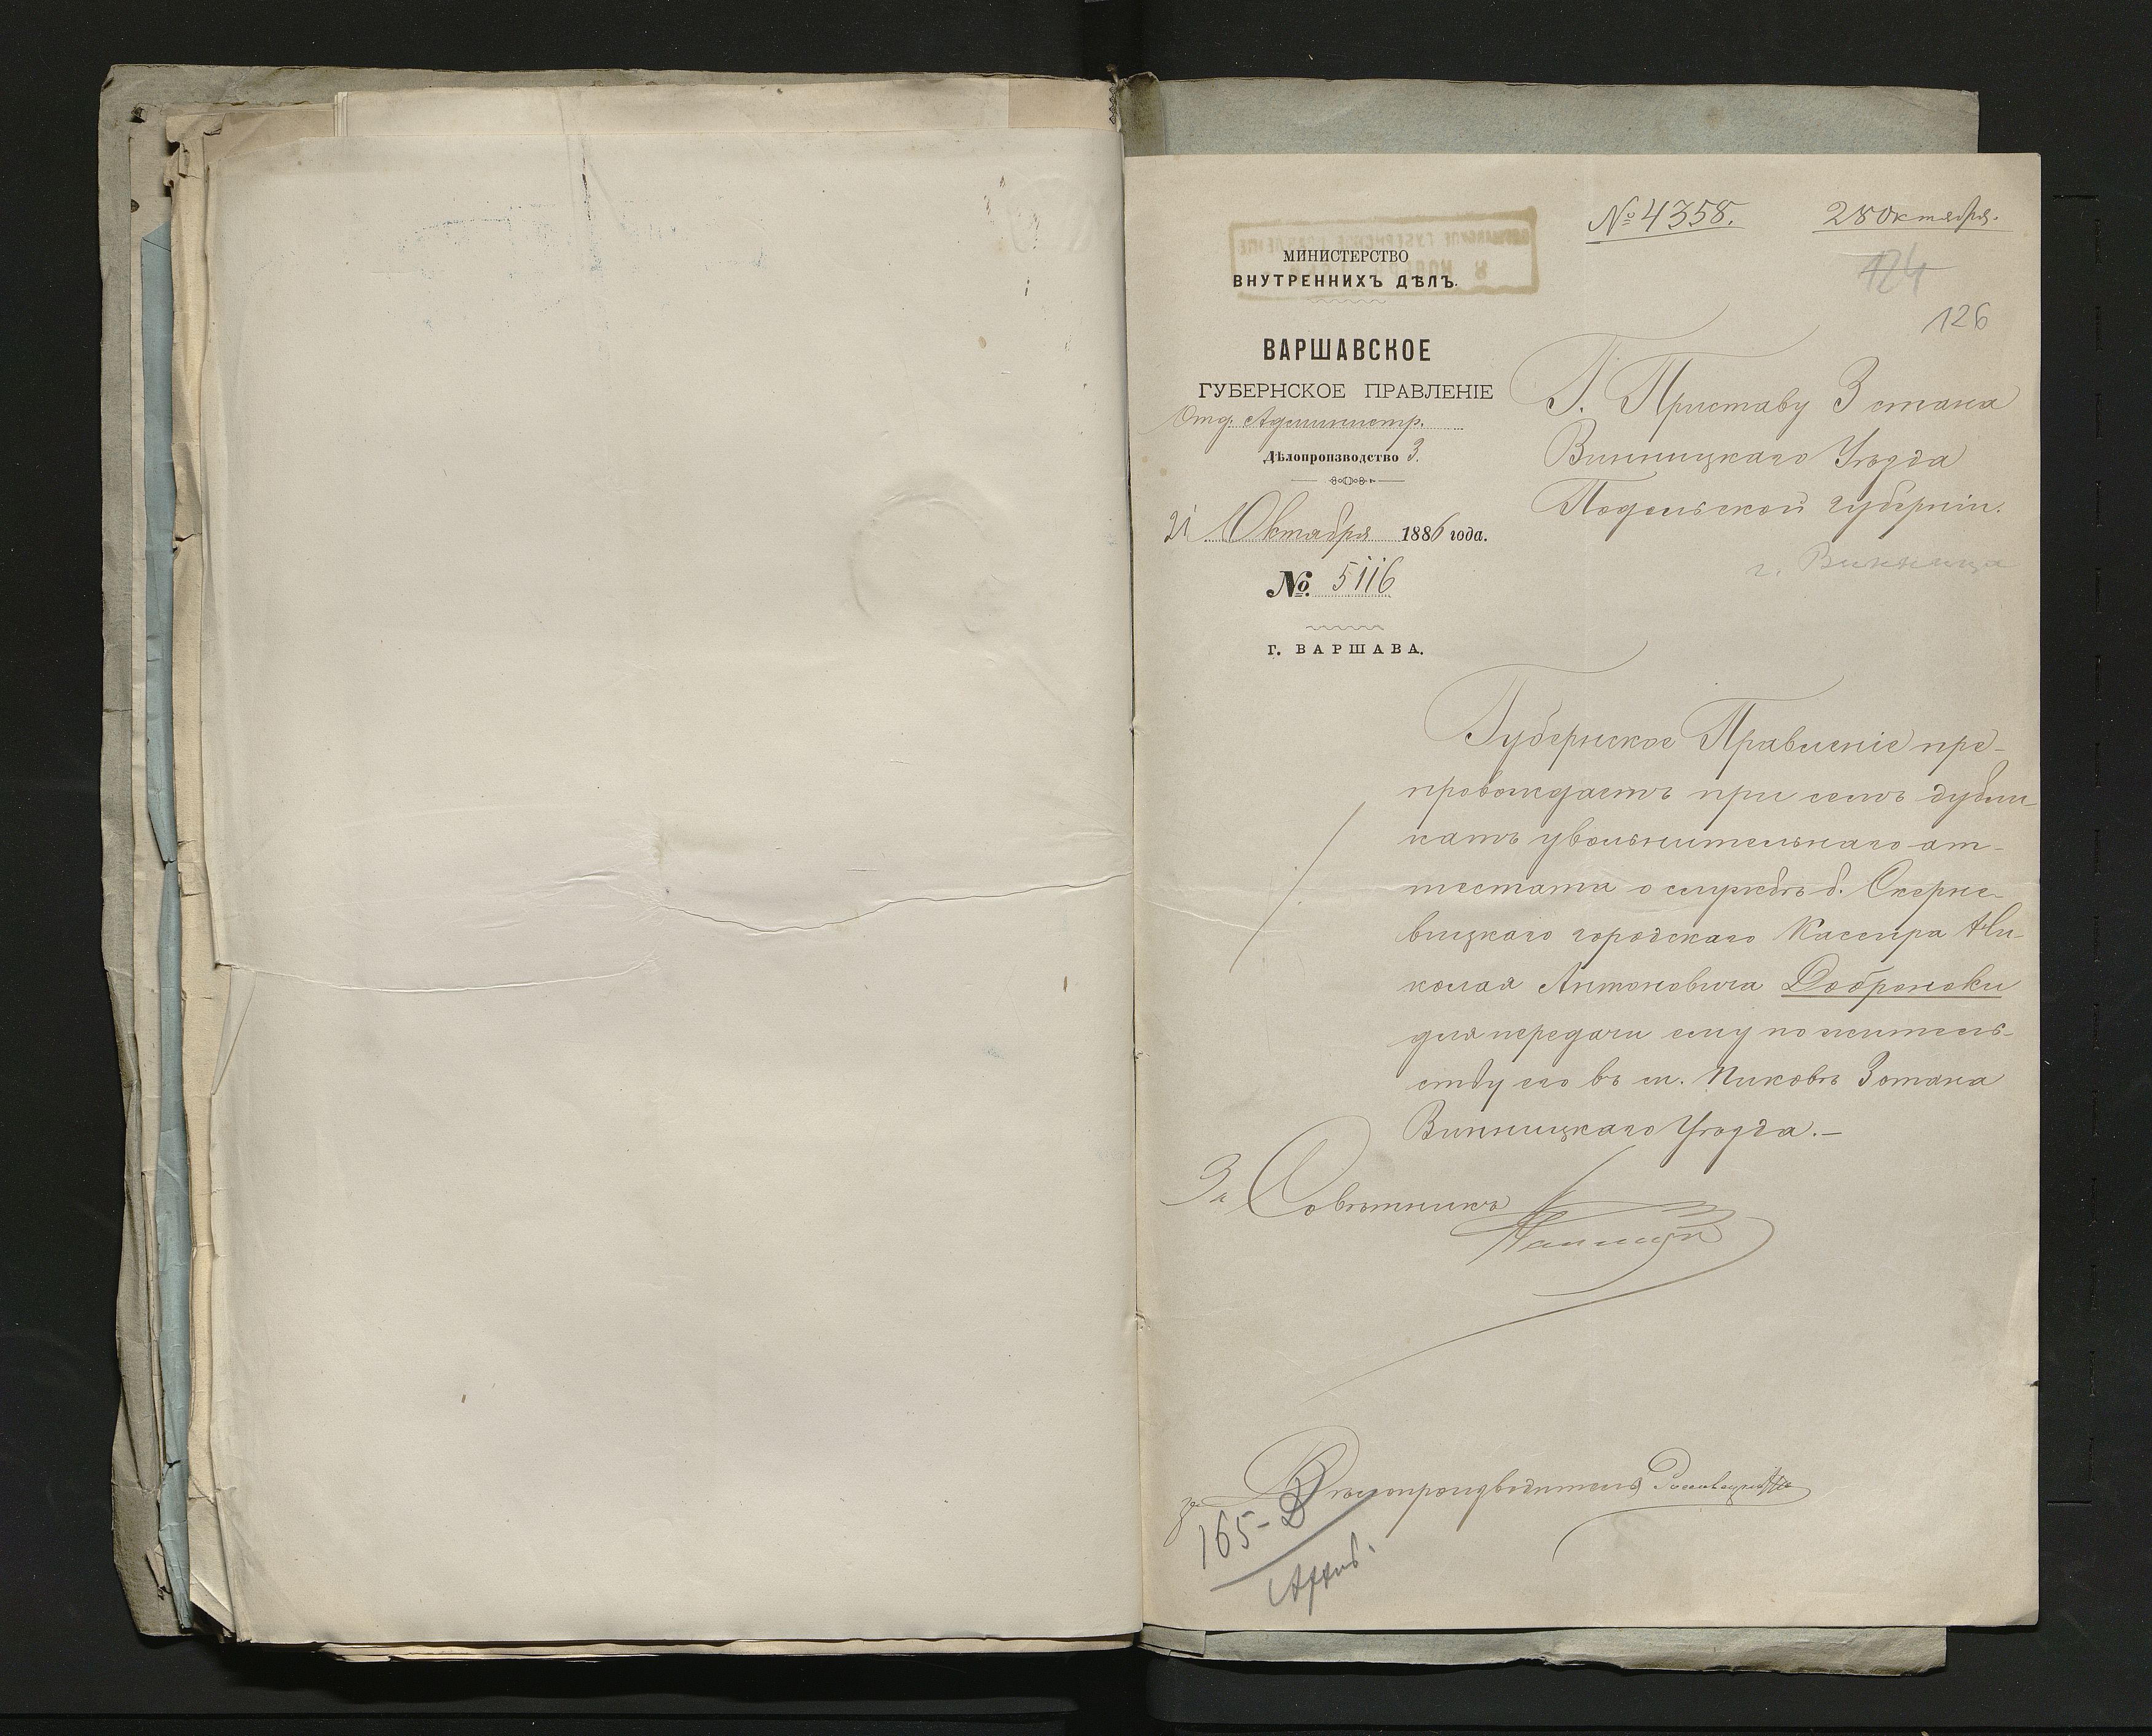 № 4358. 28 Октября.
124
126
МИНИСТЕРСТВО
ВНУТРЕННИХЪ ДѢЛЪ.
ВАРШАВСКОЕ
ГУБЕРНСКОЕ ПРАВЛЕНІЕ
Отд. Администр.
Дѣлопроизводство 3.
21 Октября 1886 года.
№. 5116
г. ВАРШАВА.
Г. Приставу 3 стана
Винницкаго Уѣзда
Подольской губерніи.
г. Винница
Губернское Правленіе пре-
провождаетъ при семъ дубли-
катъ увольнительнаго ат-
тестата о службѣ б. Скерне-
вицкаго городскаго Кассира Ни-
колая Антоновича Доброноки
для передачи ему по житель-
ству его въ м. Пиковѣ 3 стана
Винницкаго Уѣзда.—
За Совѣтникъ
за Дѣлопроизводитель
165-D
Архив.